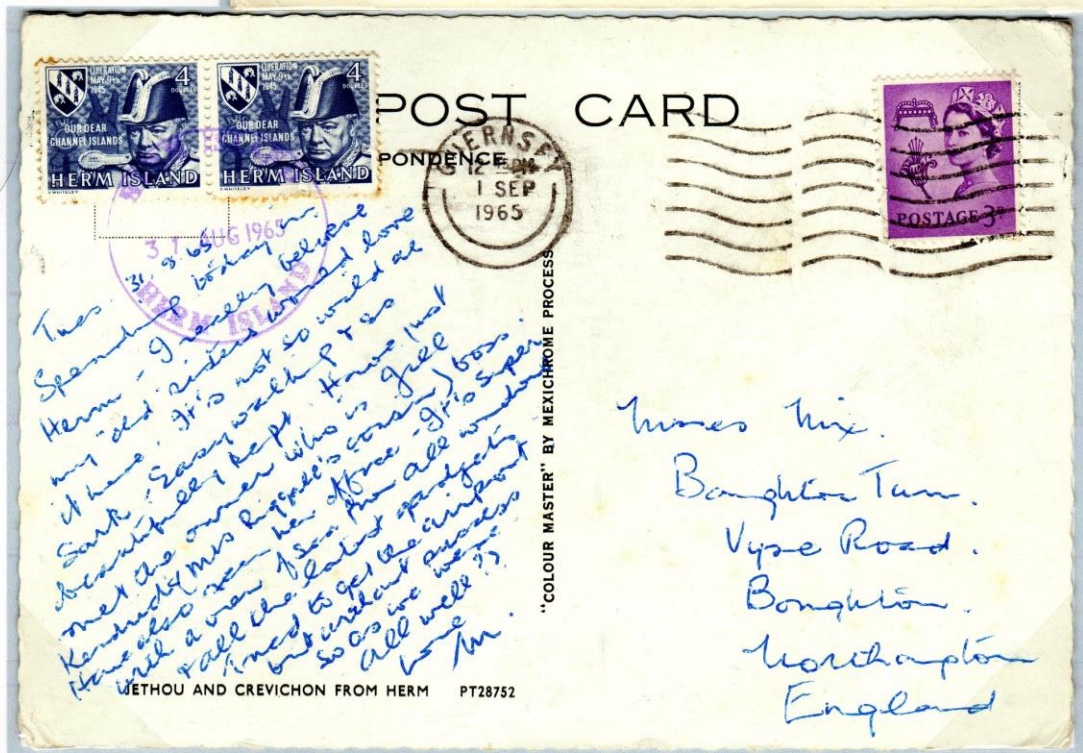 LIBERATION
MAY 9TH
1945
4
DOUBLES
OUR DEAR
CHANNEL ISLANDS
HERM ISLAND
WHITELEY
LIBERATION
MAY 9TH
1945
4
DOUBLES
OUR DEAR
CHANNEL ISLANDS
HERM ISLAND
WHITELEY
POST CARD
PONDENCE
GUERNSEY
12
1 SEP
1965
POSTAGE 3D
31 AUG 1965
HERM ISLAND
Tues 31.8.65
Spending today in
Herm - I really believe
my old sisters would love
it here. It's not so world as
Sark. Easy walking & so
beautifully kept. Have just
met the owner who is Jill
(Mrs Riggall's cousin) boss.
Have also seen her office - It's super
with a view of sea from all windows
& all the latest gadgets.
Tried to get the airport
but without success
so as we were
all well??
Love
M.
"COLOUR MASTER" BY MEXICHROME PROCESS
Misses Nix.
Boughton Turn.
Vyse Road.
Boughton.
Northampton
England
JETHOU AND CREVICHON FROM HERM PT28752